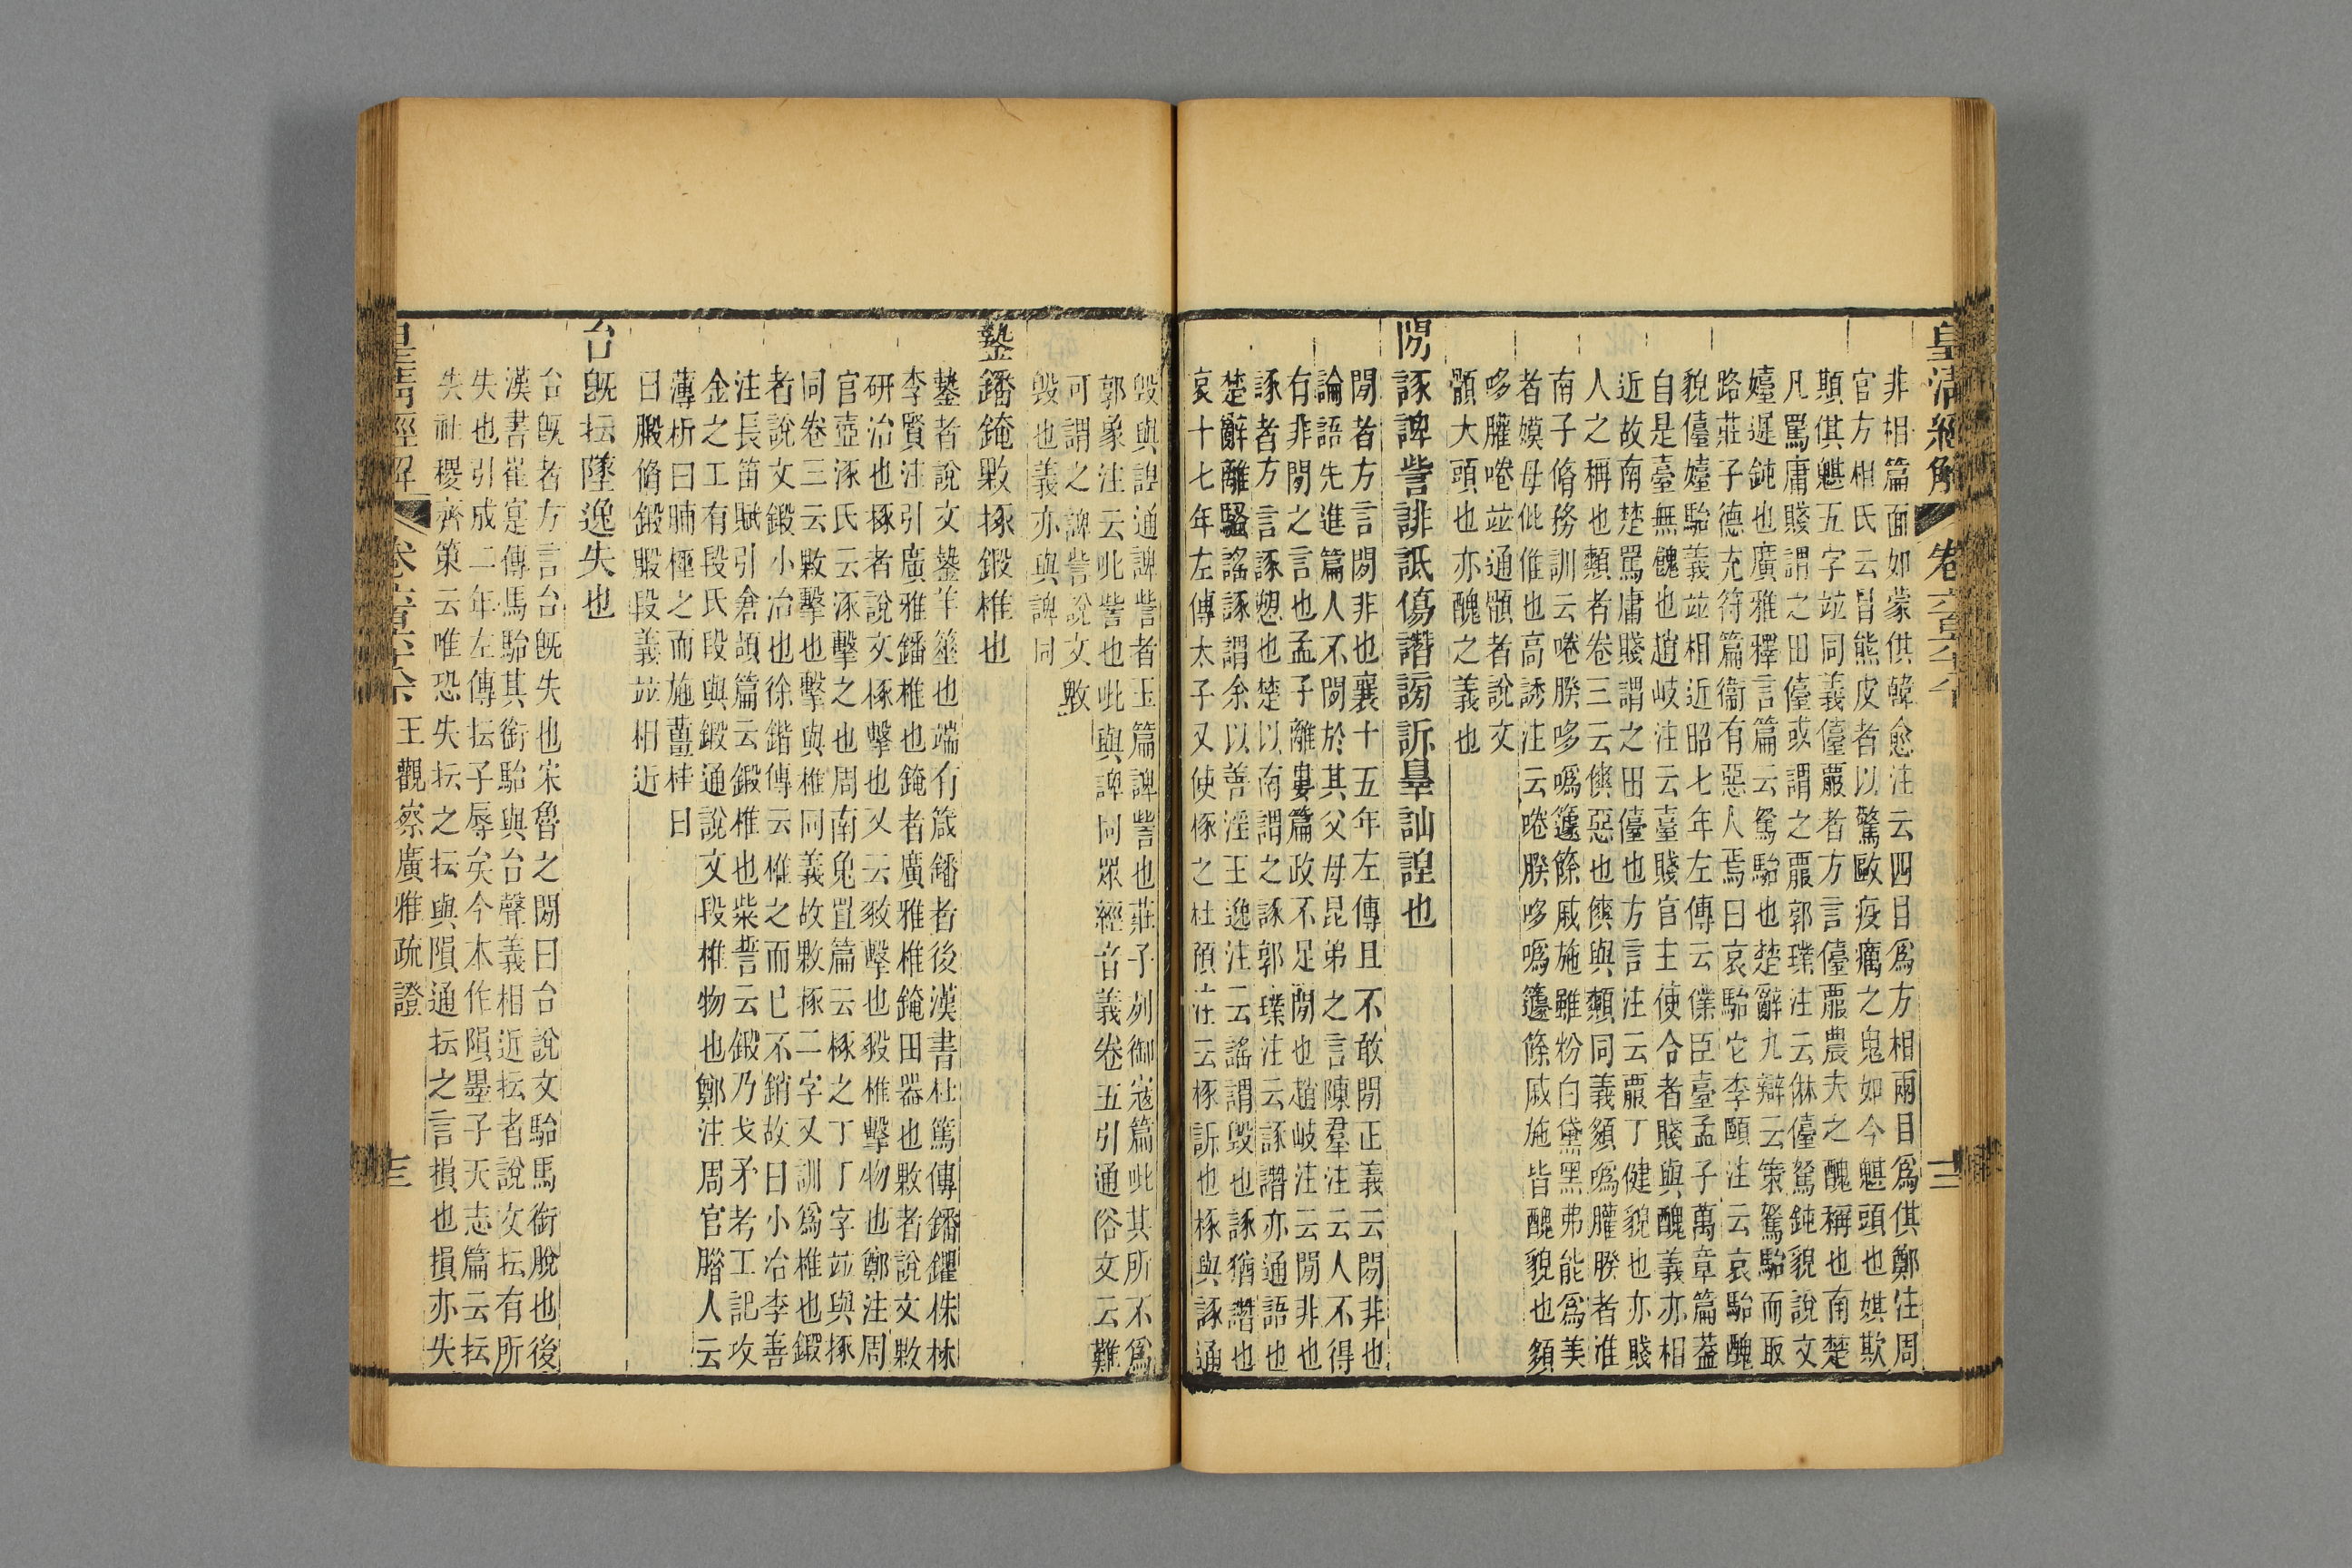 皇清經解 卷六百六十 三
非相篇面如蒙倛韓愈注云四目爲方相兩目爲倛鄭注周
官方相氏云冒熊皮者以驚敺疫癘之鬼如今魌頭也娸欺
䫏倛魌五字竝同義儓䎱者方言儓䎱農夫之醜稱也南楚
凡罵庸賤謂之田儓或謂之䎱郭璞注云㑣儓駑鈍貌說文
嬯遲鈍也廣雅釋言篇云駑駘也楚辭九辯云策駑駘而取
路莊子德充符篇衞有惡人焉曰哀駘它李頤注云哀駘醜
貌儓嬯駘義竝相近昭七年左傳云僕臣臺孟子萬章篇葢
自是臺無餽也趙岐注云臺賤官主使合者賤與醜義亦相
近故南楚罵庸賤謂之田儓也方言注云䎱丁健貌也亦賤
人之稱也䫏者卷三云僛惡也僛與䫏同義頯㖞䑏朕者淮
南子脩務訓云啳朕哆㖞籧篨戚施雖粉白黛黑弗能爲美
者嫫母仳倠也高誘注云啳朕哆㖞籧篨戚施皆醜貌也頯
哆䑏啳竝通顝者說文
顝大頭也亦醜之義也
閍諑諀訾誹詆傷譖謗訴辠訕諻也
閒者方言閒非也襄十五年左傳且不敢閒正義云閒非也
論語先進篇人不閒於其父母昆弟之言陳羣注云人不得
有非閒之言也孟子離婁篇政不足閒也趙岐注云閒非也
諑者方言諑愬也楚以南謂之諑郭璞注云諑譖亦通語也
楚辭離騷謠諑謂余以善淫王逸注云謠謂毀也諑猶譖也
哀十七年左傳太子又使椓之杜預注云椓訴也椓與諑通
毀與諻通諀訾者玉篇諀訾也莊子列御寇篇吡其所不爲
郭象注云吡訾也吡與諀同眾經音義卷五引通俗文云難
可謂之諀訾說文㱉
毀也義亦與諀同
鏨鐇䤶㪣㧻鍛椎也
鏨者說文鏨羊箠也端有箴鐇者後漢書杜篤傳鐇钁株林
李賢注引廣雅鐇椎也䤶者廣雅椎䤶田器也㪣者說文㪣
研治也㧻者說文㧻擊也又云㪣擊也㱾椎擊物也鄭注周
官壺涿氏云涿擊之也周南兔罝篇云椓之丁丁字竝與㧻
同卷三云㪣擊也擊與椎同義故㪣㧻二字又訓爲椎也鍛
者說文鍛小冶也徐鍇傳云椎之而已不銷故曰小冶李善
注長笛賦引倉頡篇云鍛椎也柴誓云鍛乃戈矛考工記攻
金之工有段氏段與鍛通說文段椎物也鄭注周官腊人云
薄析曰脯棰之而施薑桂曰
腶脩鍛腶段義竝相近
台旣抎墜逸失也
台旣者方言台旣失也宋魯之閒曰台說文駘馬銜脫也後
漢書崔寔傳馬駘其銜駘與台聲義相近抎者說文抎有所
失也引成二年左傳抎子辱矣今本作隕墨子天志篇云抎
失社稷齊策云唯恐失抎之抎與隕通抎之言損也損亦失
皇清經解 卷六百六十 王觀察廣雅疏證 三